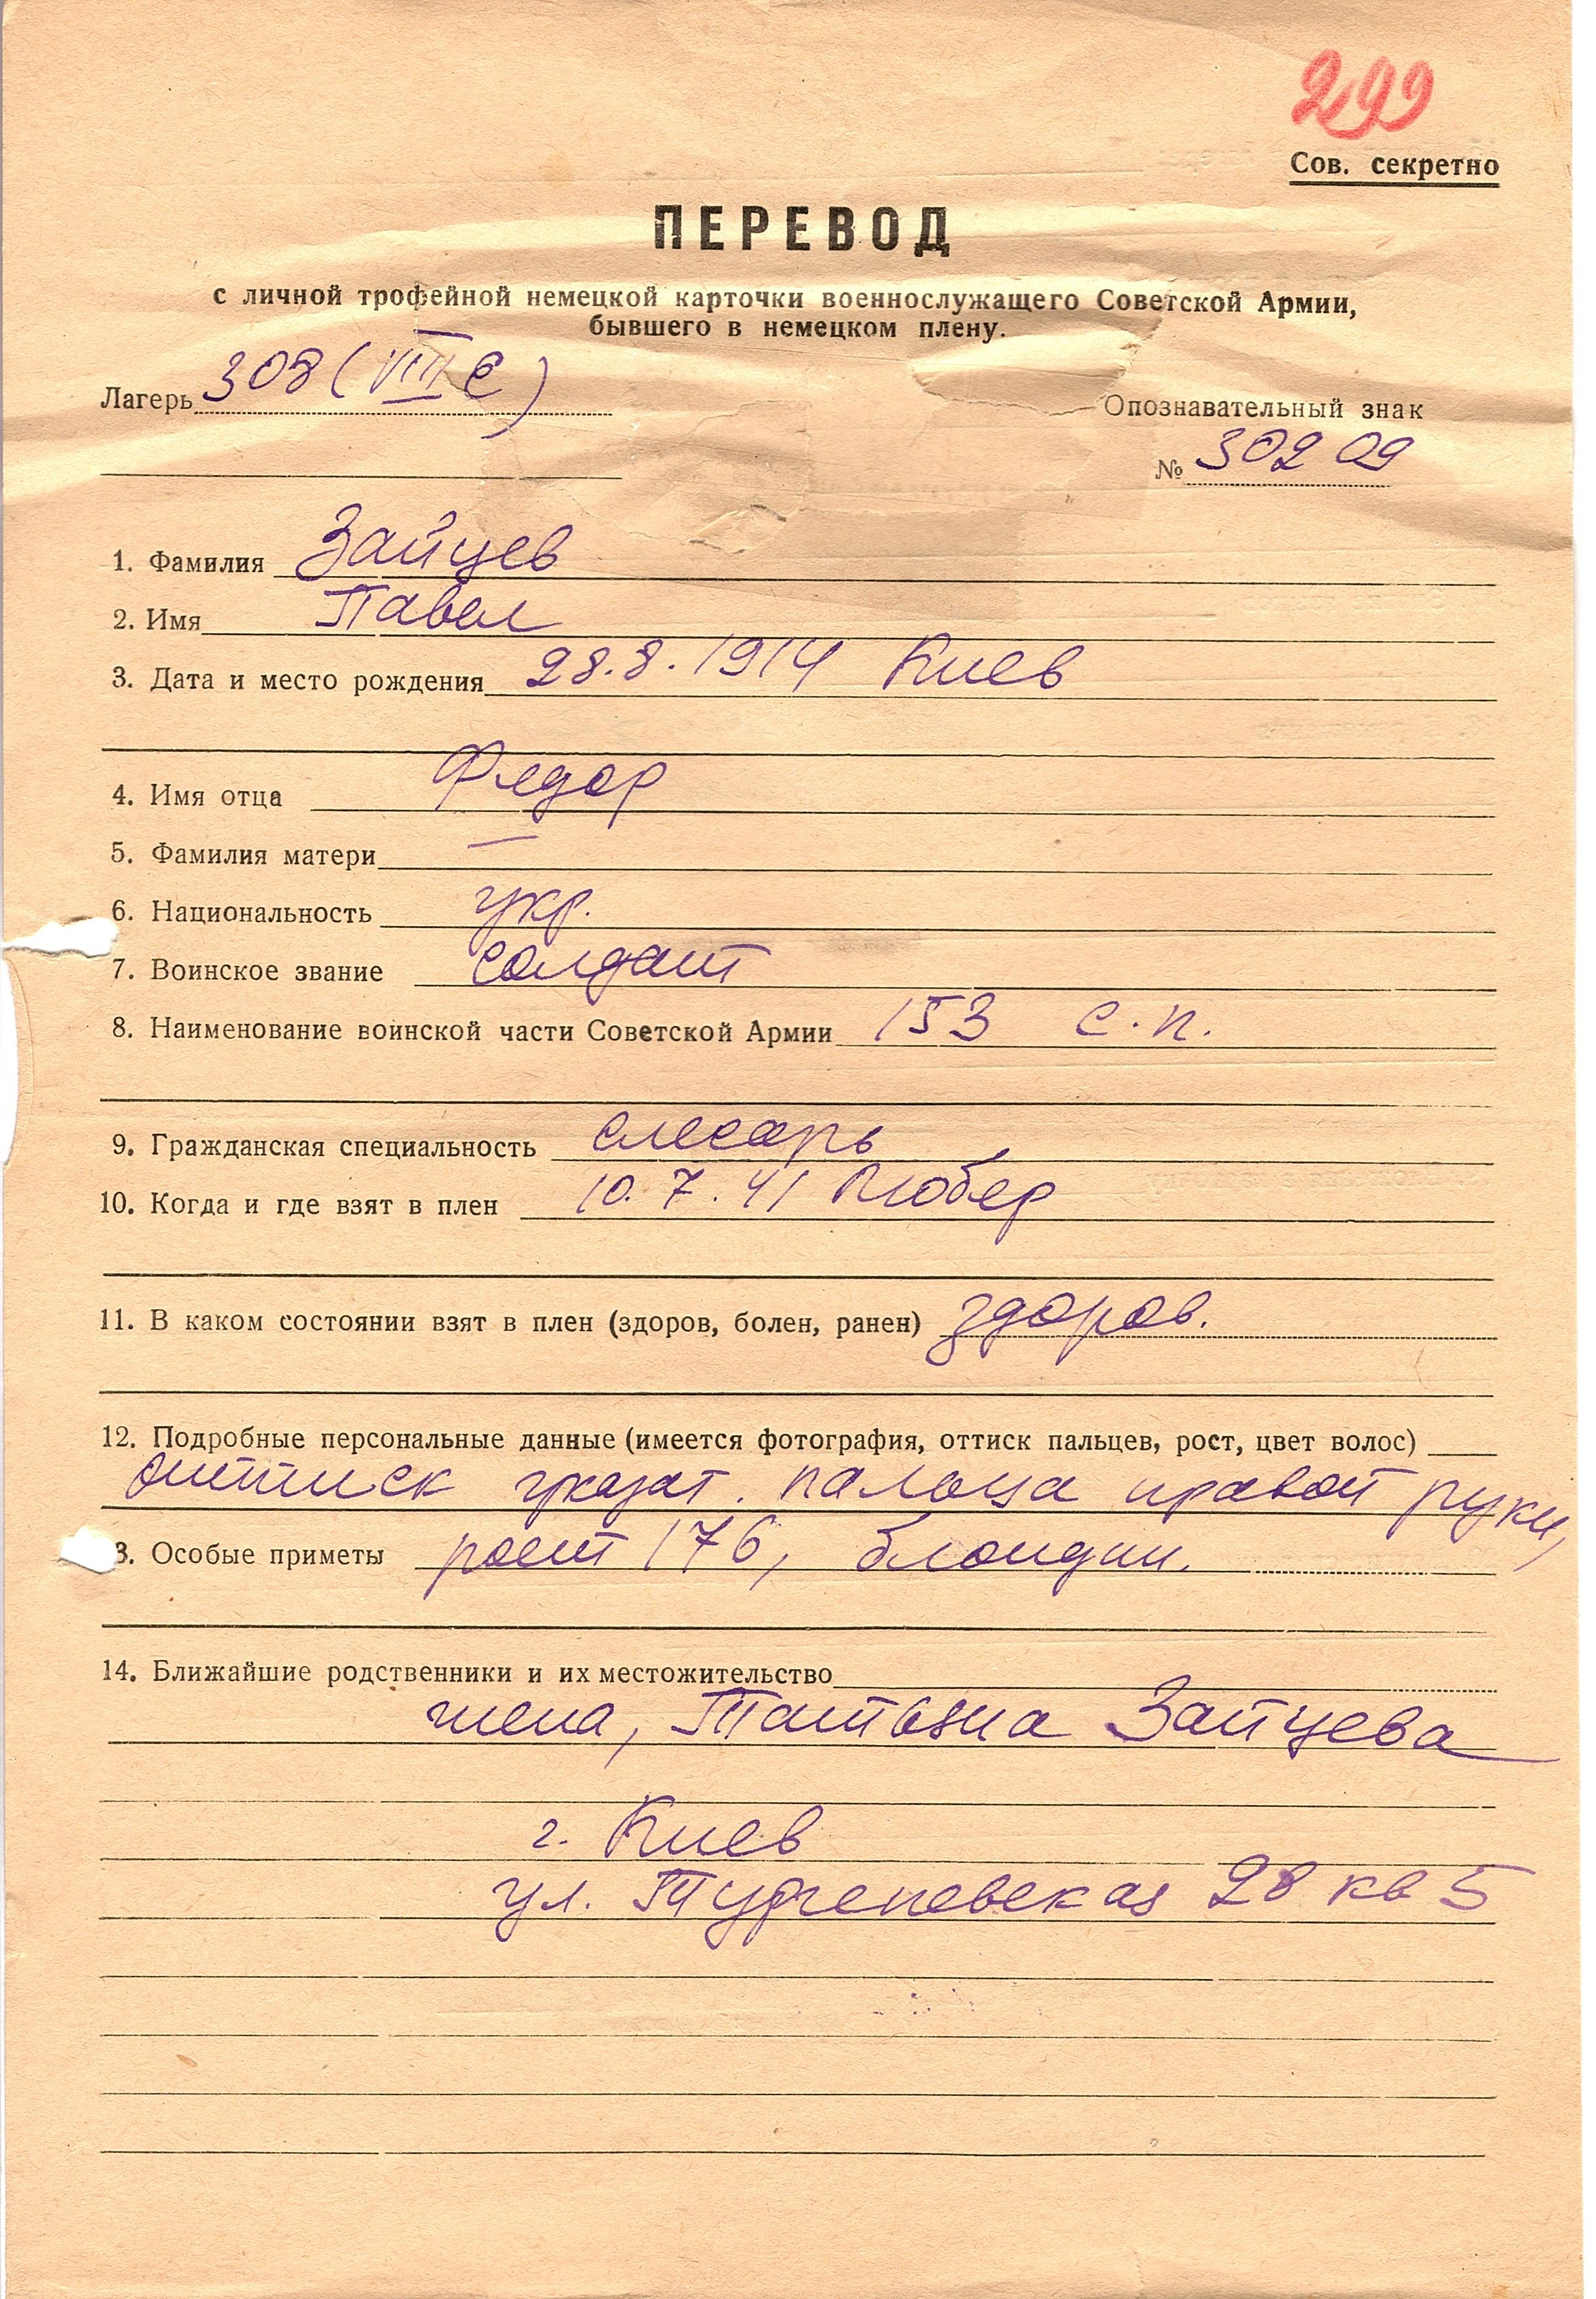 299
Сов. секретно
ПЕРЕВОД
с личной трофейной немецкой карточки военнослужащего Советской Армии,
бывшего в немецком плену.
Лагерь 308 (VIII E)
Опознавательный знак
№ 30209
1. Фамилия Зайцев
2. Имя Павел
3. Дата и место рождения 28.8.1914 Киев
4. Имя отца Федор
5. Фамилия матери —
6. Национальность укр.
7. Воинское звание солдат
8. Наименование воинской части Советской Армии 153 с.п.
9. Гражданская специальность слесарь
10. Когда и где взят в плен 10.7.41 Любер
11. В каком состоянии взят в плен (здоров, болен, ранен) здоров.
12. Подробные персональные данные (имеется фотография, оттиск пальцев, рост, цвет волос)
оттиск указат. пальца правой руки,
3. Особые приметы рост 176, блондин.
14. Ближайшие родственники и их местожительство
жена, Татьяна Зайцева
г. Киев
ул. Тургеневская 28 кв 5